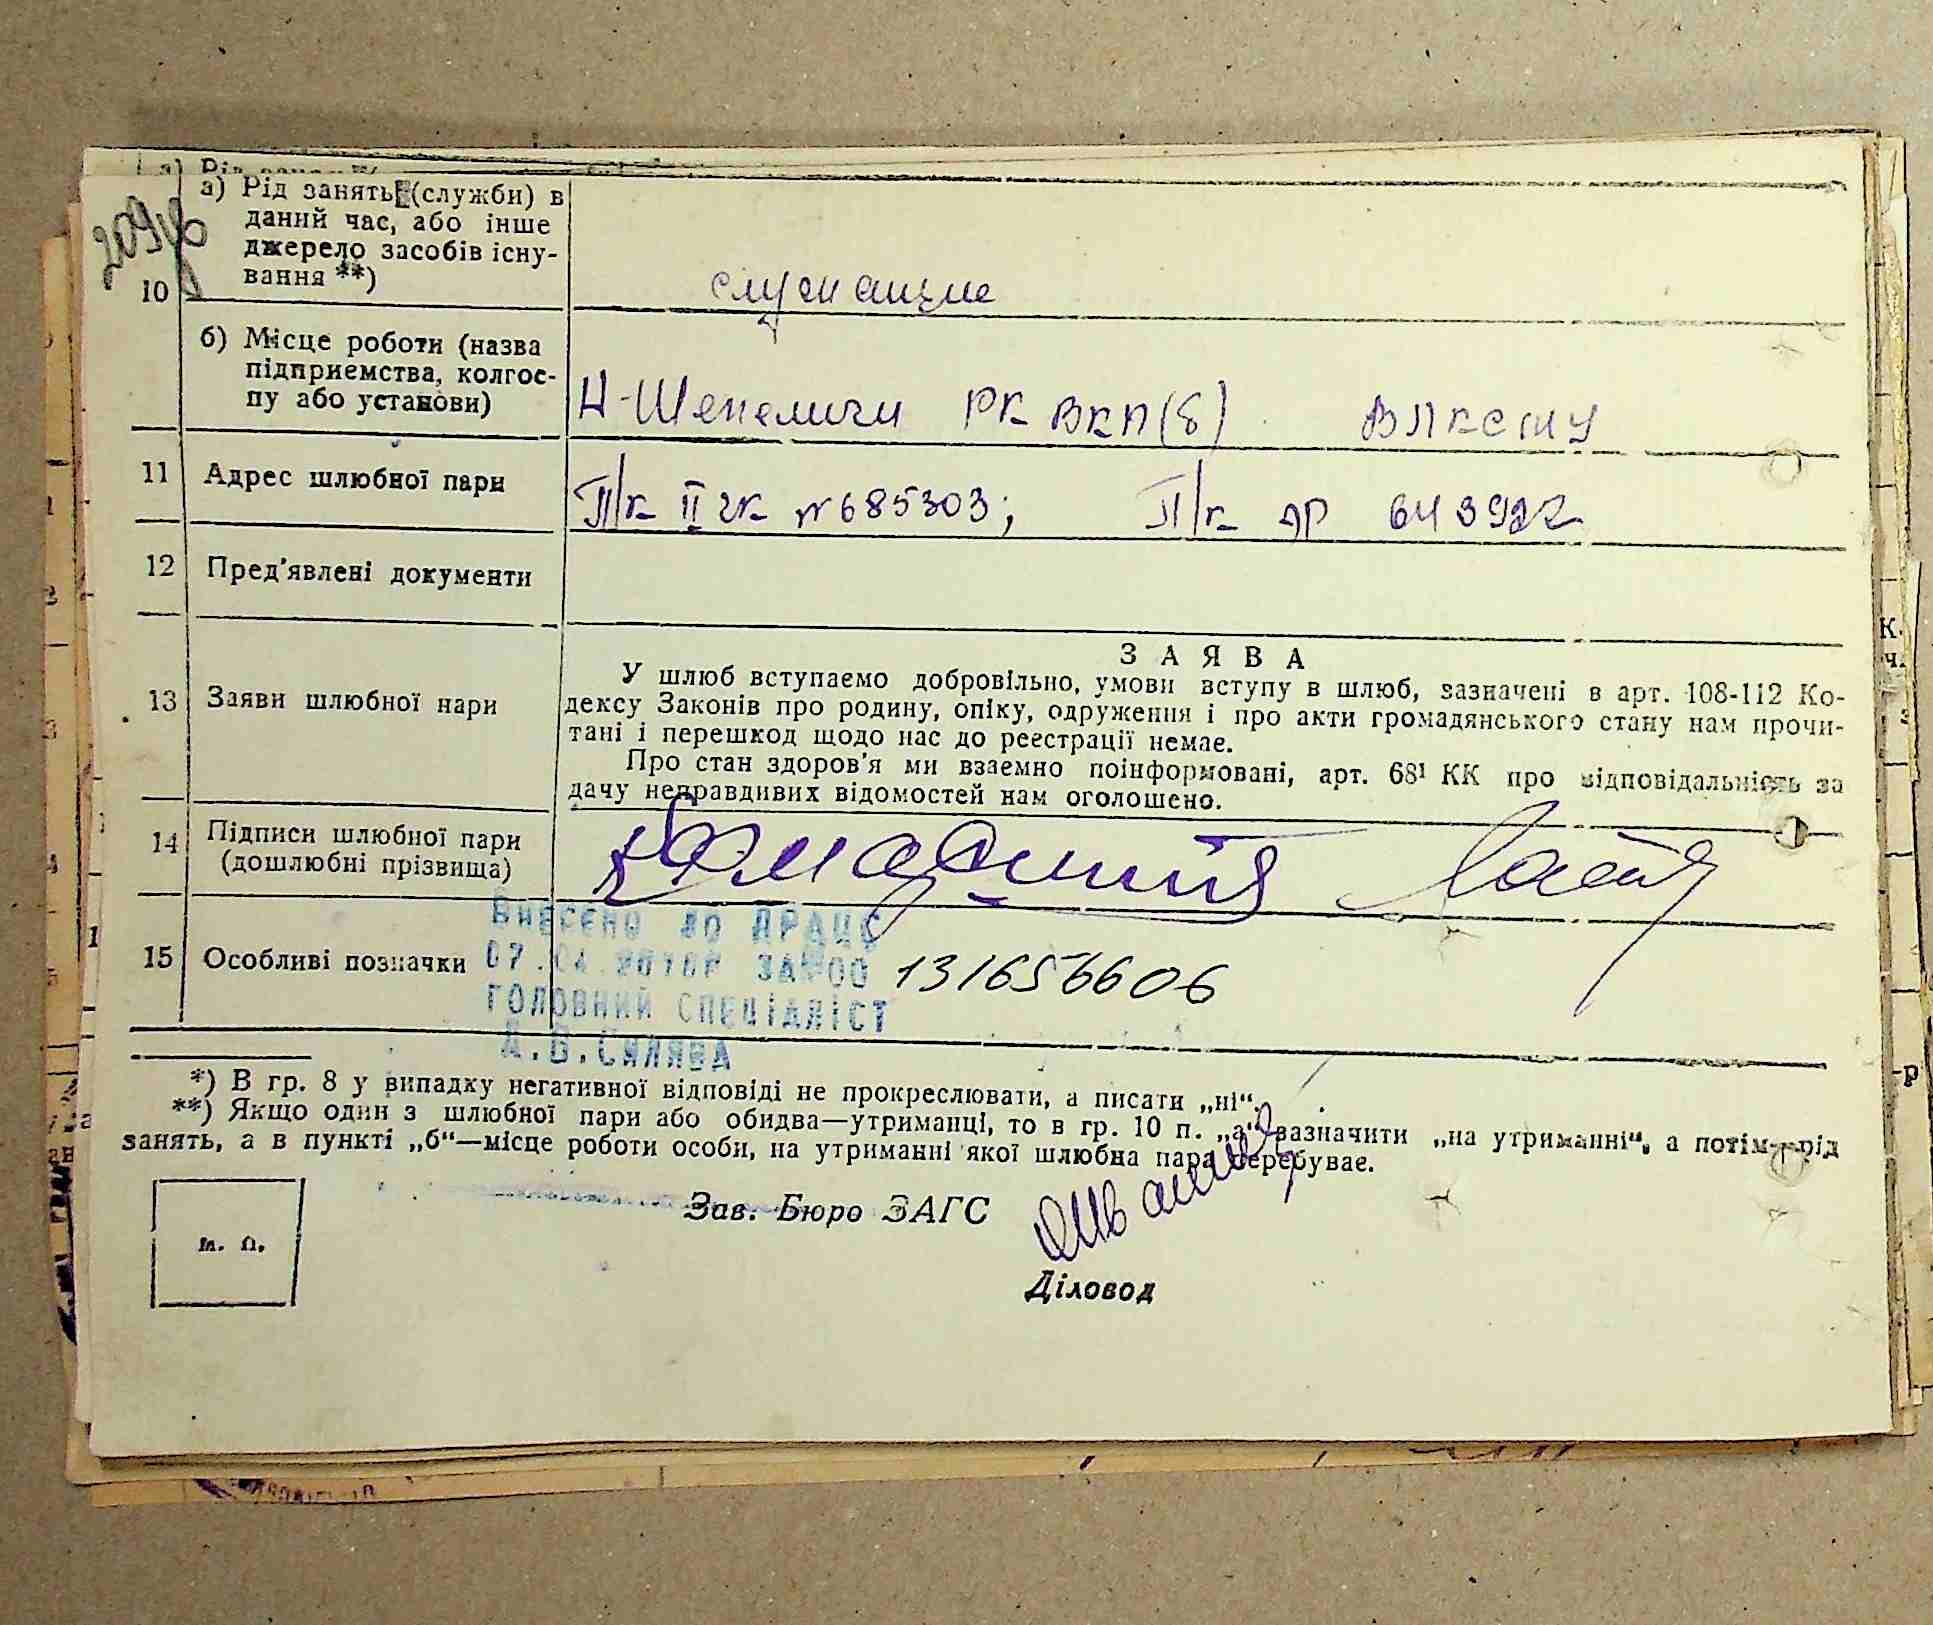 209 зв
а) Рід занять (служби) в
даний час, або інше
джерело засобів існу-
вання **)
10
служащие
б) Місце роботи (назва
підприємства, колгос-
пу або установи)
Н-Шепеличи РК ВКП(б) ВЛКСМУ
11 Адрес шлюбної пари
П/к II ЧК №685303; П/к ЯР 643927
12 Пред'явлені документи
ЗАЯВА
13 Заяви шлюбної пари
У шлюб вступаємо добровільно, умови вступу в шлюб, зазначені в арт. 108-112 Ко-
дексу Законів про родину, опіку, одруження і про акти громадянського стану нам прочи-
тані і перешкод щодо нас до реєстрації немає.
Про стан здоров'я ми взаємно поінформовані, арт. 68¹ КК про відповідальність за
дачу неправдивих відомостей нам оголошено.
14 Підписи шлюбної пари
(дошлюбні прізвища)
15 Особливі позначки
ВНЕСЕНО ДО ДРАЦС
ГОЛОВНИЙ СПЕЦІАЛІСТ
131656606
*) В гр. 8 у випадку негативної відповіді не прокреслювати, а писати „ні“.
**) Якщо один з шлюбної пари або обидва—утриманці, то в гр. 10 п. „а“ зазначити „на утриманні“, а потім рід
занять, а в пункті „б“—місце роботи особи, на утриманні якої шлюбна пара перебуває.
Зав. Бюро ЗАГС
М. П.
Діловод